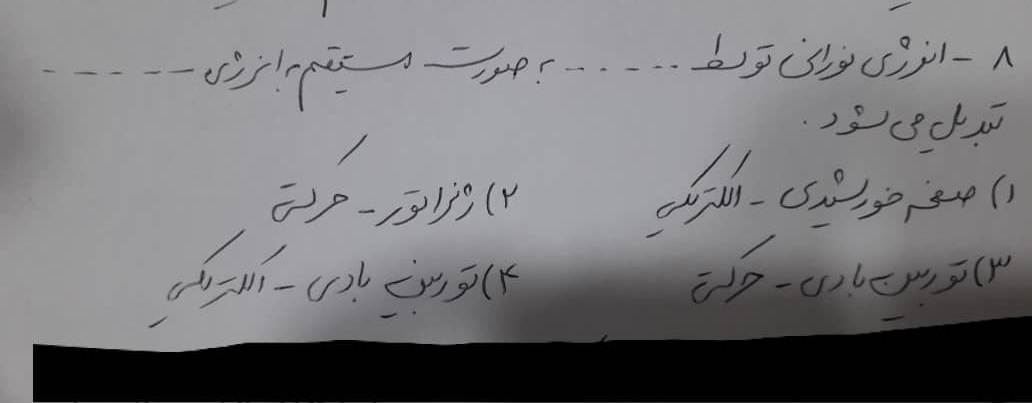 ۸ - انرژی نورانی توسط ...... به صورت مستقیم به انرژی ------
تبدیل می شود.
۱) صفحه خورشیدی - الکتریکی ۲) ژنراتور - حرکتی
۳) توربین بادی - حرکتی ۴) توربین بادی - الکتریکی